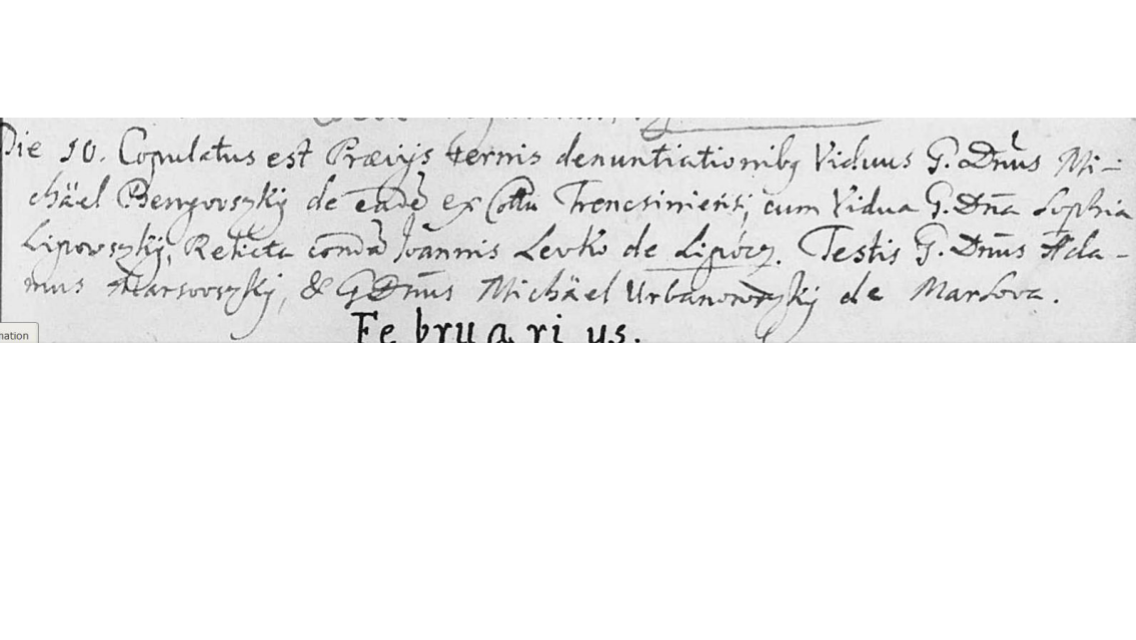 Die 10. Copulatus est Præviÿs ternis denuntiationibq Viduus G. Dnus Mi-
chäel Benyovszkÿ de eade ex Cottu Trencsiniensi, cum Vidua G. Dna Sophia
Lipovszkÿ, Relicta conda Joannis Levko de Lipócz. Testis G. Dnus Ada-
mus Marsovszkÿ, & G Dnus Michäel Urbanowszkÿ de Marsova.
Februarius.
mation